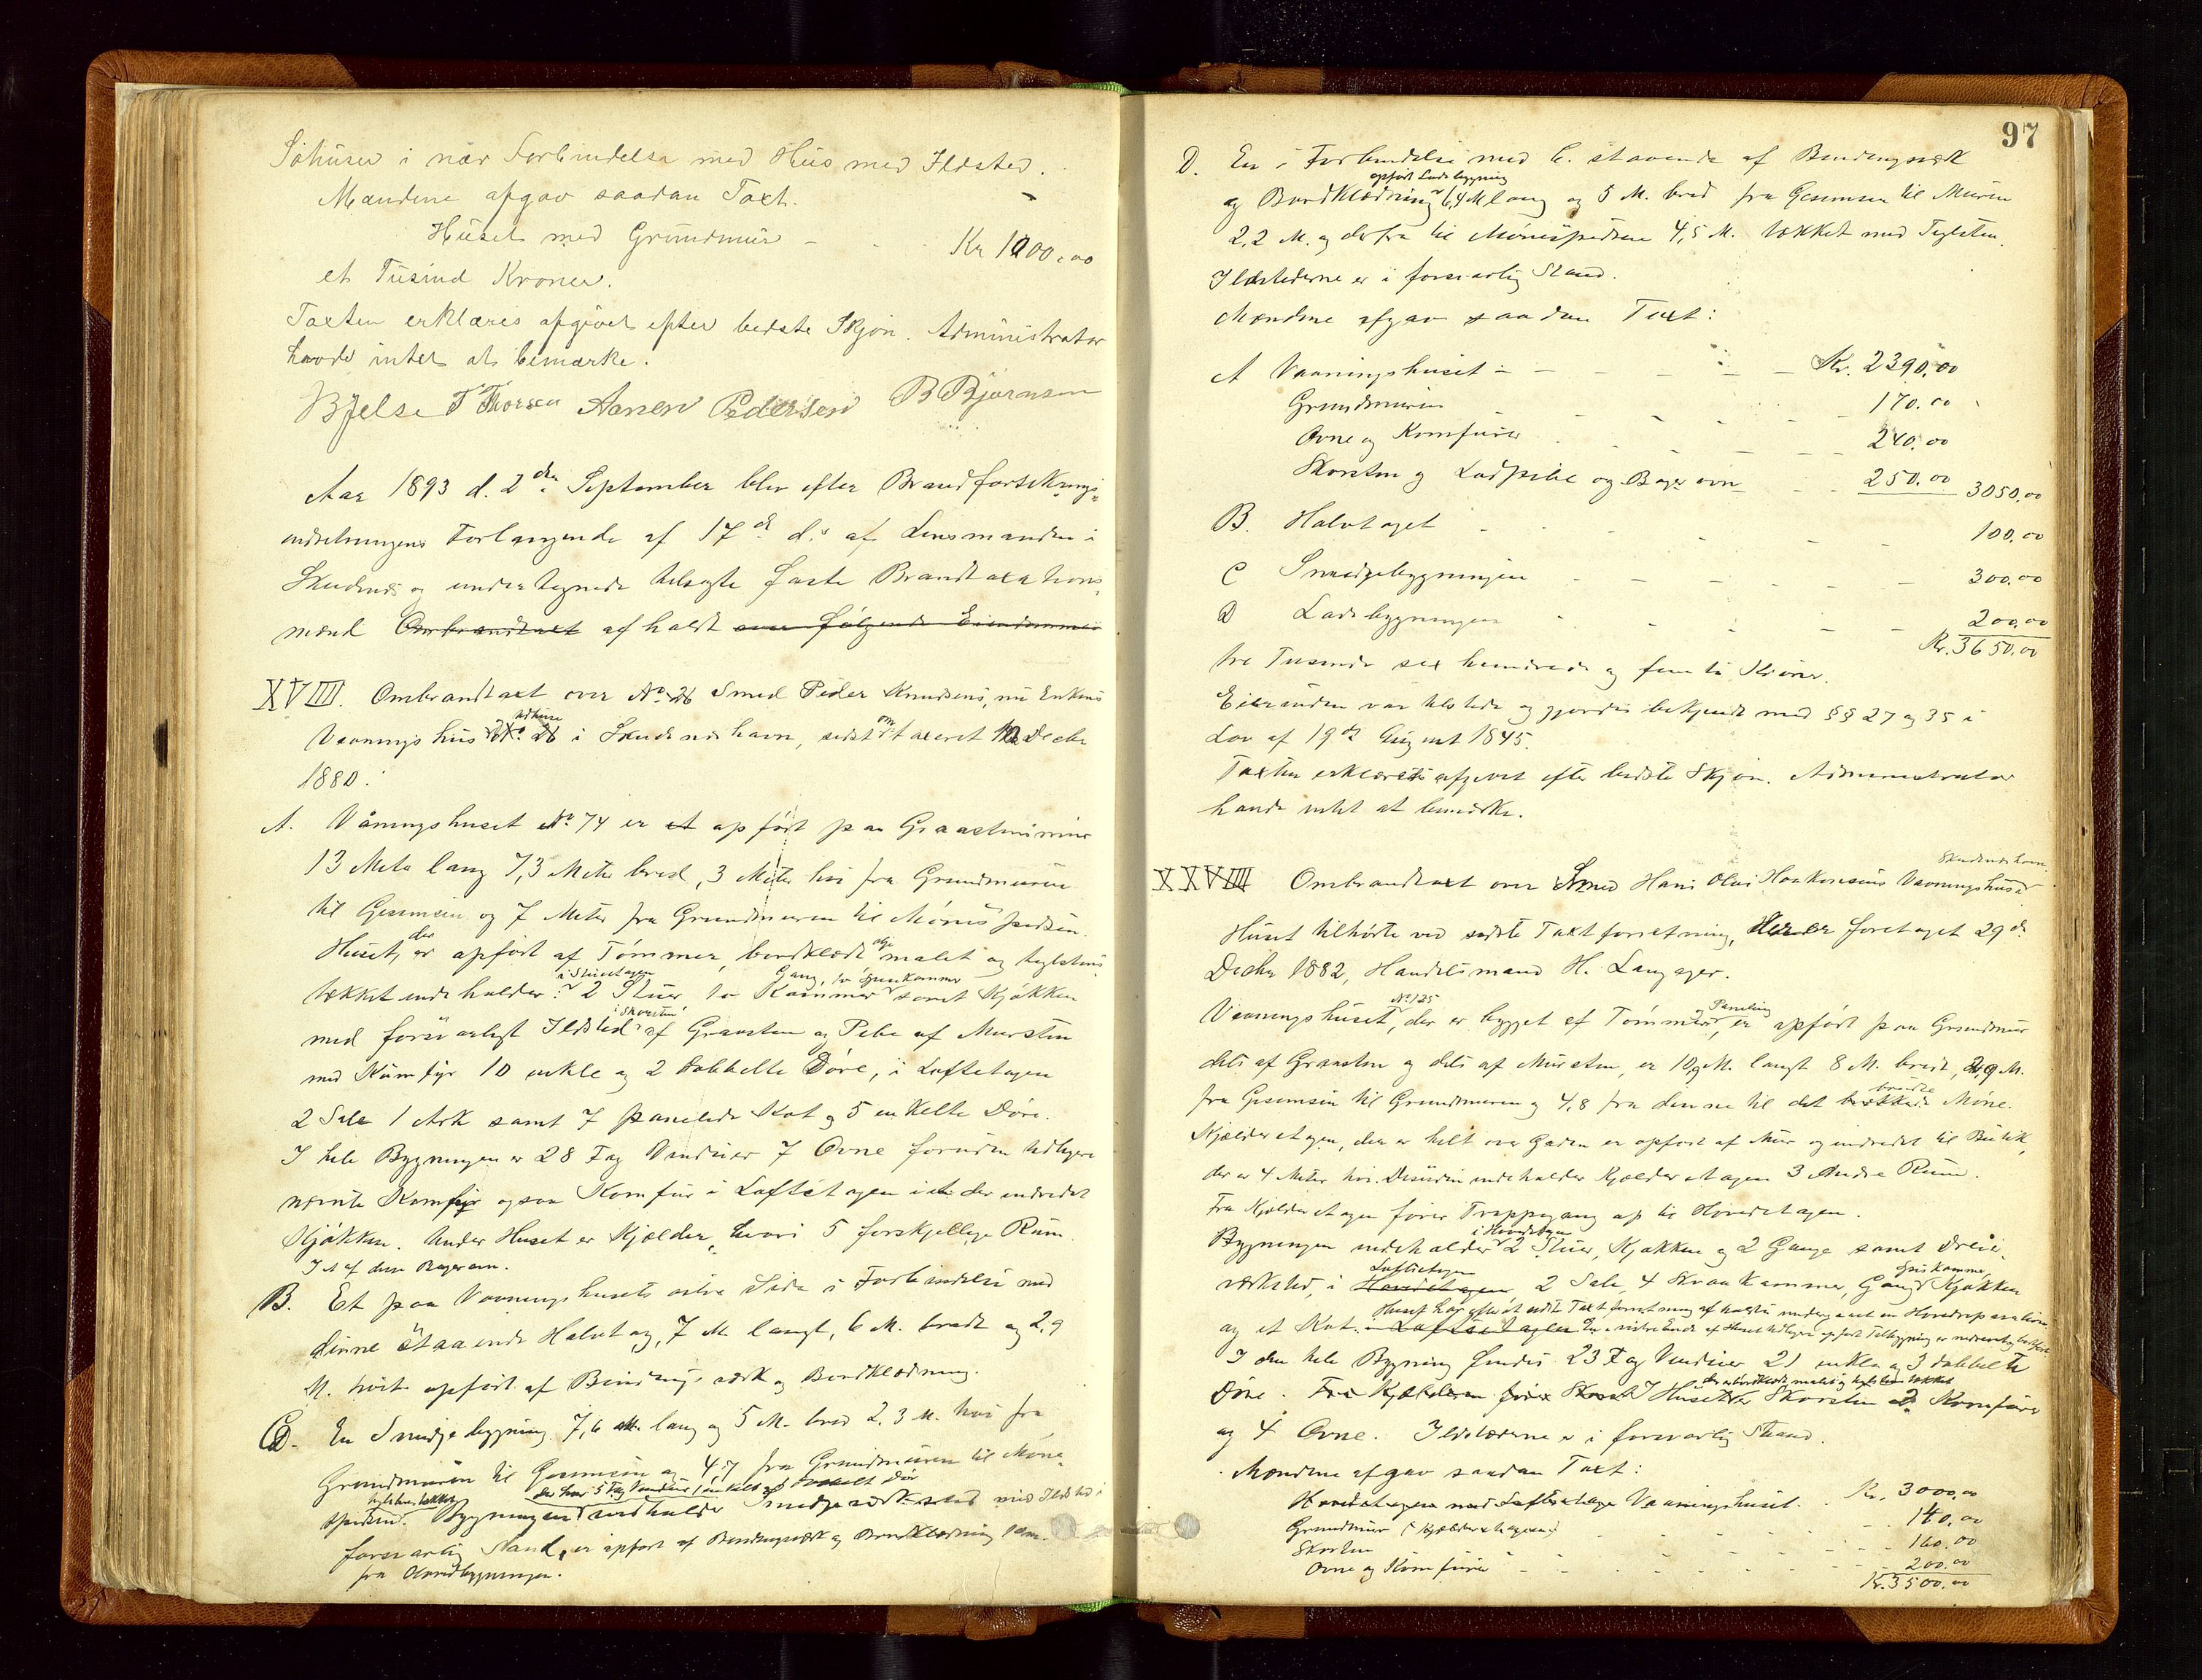 Söhuser i nær Forbindelse med Hus med Ildsted.
Mændene afgav saadan Taxt.
Huset med Grundmur - Kr 1000,00
et Tusind Kroner.
Taxten erklæres afgivet efter bedste Skjøn. Administrator
havde intet at bemærke.
T Thorsen Aanen Pedersen B Bjørnsen
Aar 1893 d. 2den September blev efter Brandforsikrings-
indretningens Forlangende af 17d d.s af Lensmanden i
Skudenes og undertegnede tilsagte faste Brandtaxations-
mænd Ombrandtaxt afholdt over følgende Eiendommer
XVIII. Ombrandtaxt over No 26 Smed Peder Knudsens, nu Enkens
Vaaningshus No 26 i Skudeneshavn, sidst omtaxeret Decbr
1880:
A. Våningshuset No 74 er et opført paa Graastensmur
13 Meter lang 7,3 Meter bred, 3 Meter høi fra Grundmuren
til Gesimsen og 7 Meter fra Grundmuren til Mønespidsen.
Huset, der er opført af Tømmer, bordklædt olje malet og teglstens-
tækket indeholder: i Stueetagen 2 Stuer, to Kammer Gang, to Spisekammer samt Kjøkken
med forsvarligt Ildsted i Skorsten af Graasten og Pibe af Mursten
med Kumfyr 10 enkle og 2 dobbelte Døre, i Loftetagen
2 Sale 1 Ark samt 7 panelede Kot og 5 enkelte Døre.
I hele Bygningen er 28 Fag Vinduer 7 Ovne foruden tidligere
nævnte Komfyr ogsaa Komfur i Loftetagen i et der indredet
Kjøkken. Under Huset er Kjælder, hvori 5 forskjellige Rum.
I et af dem Bagerovn.
B. Et paa Vaaningshusets østre Side i Forbindelse med
denne staaende Halvtag, 7 M. langt, 6 M. bredt og 2,9
M. høit opført af Bindingsværk og Bordklædning.
C. En Smidjebygning 7,6 M. lang og 5 M. bred 2,3 M. høi fra
Grundmuren til Gesimsen og 4,7 fra Grundmuren til Møne-
spidsen. teglstenstækket Bygningen der har 5 Fag Vinduer 1 enkelt og 1 dobbelt Dør indeholder Smedjeværksted med Ildsted i
forsvarlig Stand, er opført af Bindingsværk og Bordklædning
fra Hovedbygningen.
97
D. En i Forbindelse med C. staaende af Bindingsværk
og Bordklædning opført Ladebygning 6,4 M lang og 5 M. bred fra Gesimsen til Muren
2,2 M. og derfra til Mønespidsen 4,5 M. tækket med Teglsten.
Ildstederne er i forsvarlig Stand.
Mændene afgav saadan Taxt:
A Vaaningshuset - Kr. 2390,00
Grundmuren 170.00
Ovne og Komfurer 240.00
Skorsten og Ladpibe og Bagerovn 250.00 3050,00
B. Halvtaget 100.00
C Smedjebygningen 300.00
D Ladebygningen 200,00
Kr. 3650.00
tre Tusinde sex hundrede og femti Kroner.
Eierinden var tilstede og gjordes bekjendt med §§ 27 og 35 i
Lov af 19de August 1845.
Taxten erklæredes afgivet efter bedste Skjøn. Administrator
havde intet at bemærke.
XXVIIII Ombrandtaxt over Smed Hans Olai Haakonsens Vaaningshus i Skudeneshavn
Huset tilhørte ved sidste Taxtforretning, foretaget 29de
Decbr 1882, Handelsmand H. Langager.
Vaaningshuset, No 125 der er bygget af Tømmer og Paneling, er opført paa Grundmur
dels af Graasten og dels af Mursten, er 10,9 M. langt 8 M. bredt, 2,9 M.
fra Gesimsen til Grundmuren og 4,8 fra denne til det brudte Møne.
Kjælderetagen, der er helt over Gaden er opført af Mur og indredet til Butik,
der er 4 Meter høi. Desuden indeholder Kjælderetagen 3 Andre Rum.
Fra Kjælderetagen fører Trappegang op til Hovedetagen.
Bygningen indeholder i Hovedetagen 2 Stuer, Kjøkken og 2 Gange samt Dreie-
værksted, i Loftetagen Hovedetagen 2 Sale, 4 Skraakammer, Gang Spiskammer Kjøkken
og et Kot. i Loftsetagen Huset har efter at sidste Taxtforretning afholdtes undergaaet en Hovedreparation.
I den hele Bygning findes 23 Fag Vinduer 21 enkle og 3 dobbelte
Døre. Fra Kjælderen fører Skorst I Huset der er bordklædt, malet og teglstentækket er Skorsten 2 Komfurer
og 4 Ovne. Ildstederne er i forsvarlig Stand.
Mændene afgav saadan Taxt:
Hovedetagen med Loftsetage Vaaningshuset. Kr. 3000,00
Grundmur (Kjælderetagen) 140.00
Skorsten 160.00
Ovne og Komfurer 200.00
Kr. 3500.00